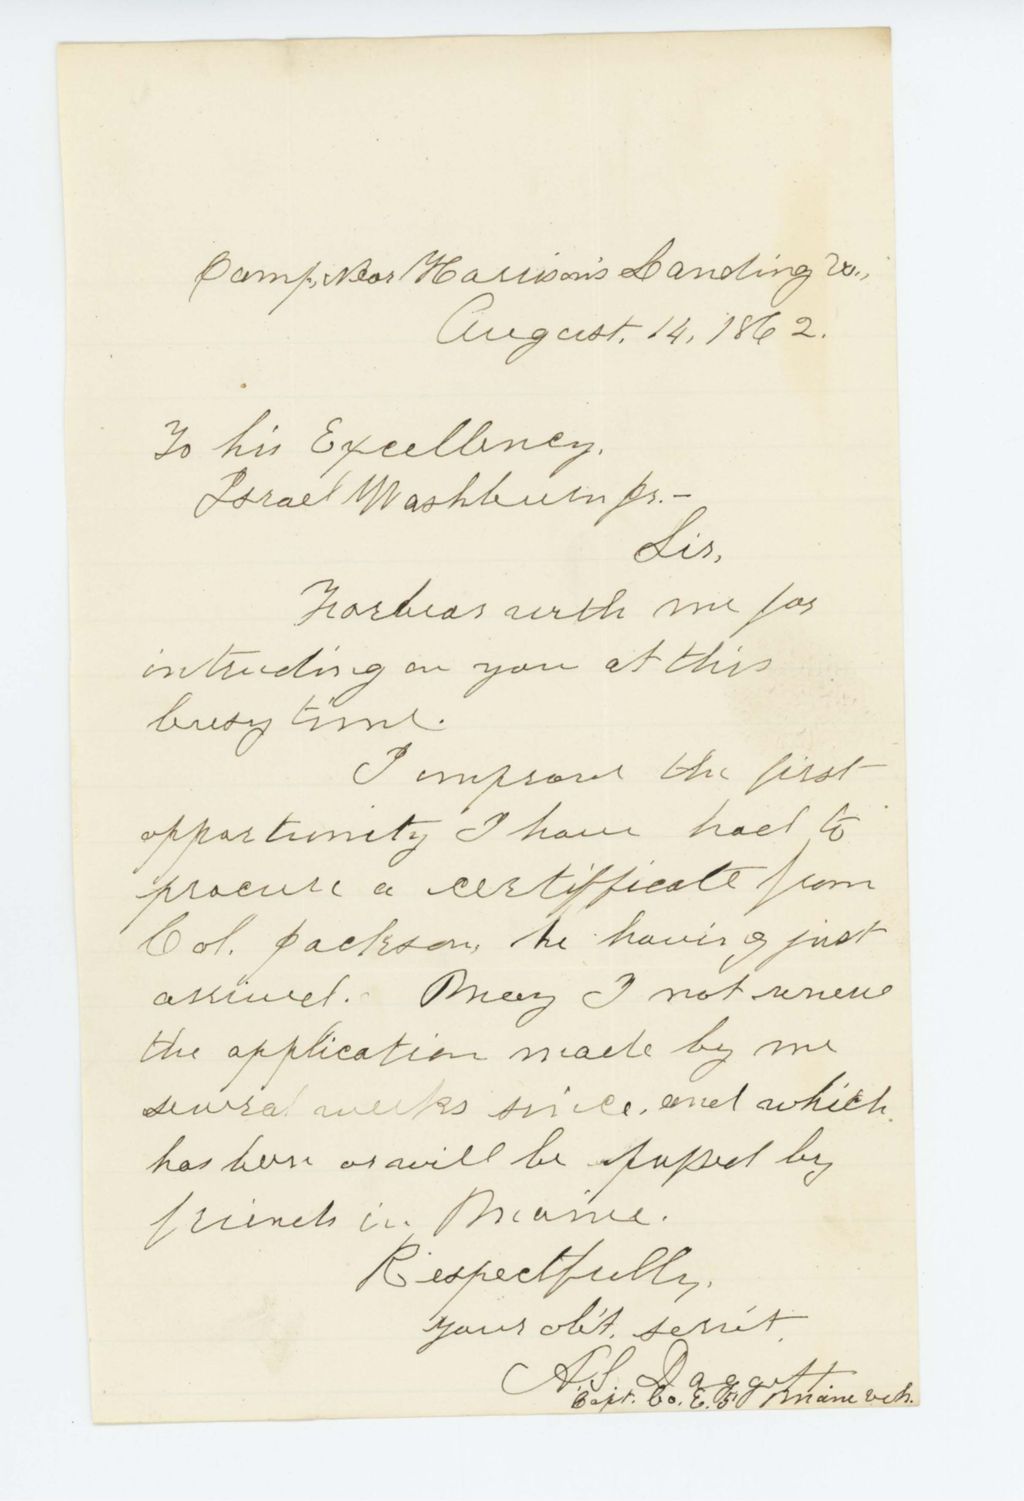 Camp, Near Harrison's Landing Va.,
August. 14, 1862.
To his Excellency.
Israel Washburn Jr. –
Sir,
Forbear with me for
intruding on you at this
busy time.
I improve the first
opportunity I have had to
procure a certifficate from
Col. Jackson, he having just
arrived. – May I not renew
the application made by me
several weeks since, and which
has been or will be by
friends in Maine.
Respectfully,
your ob't. serv't.
A.S. Daggett
Capt. Co. E. 5 Maine Vols.